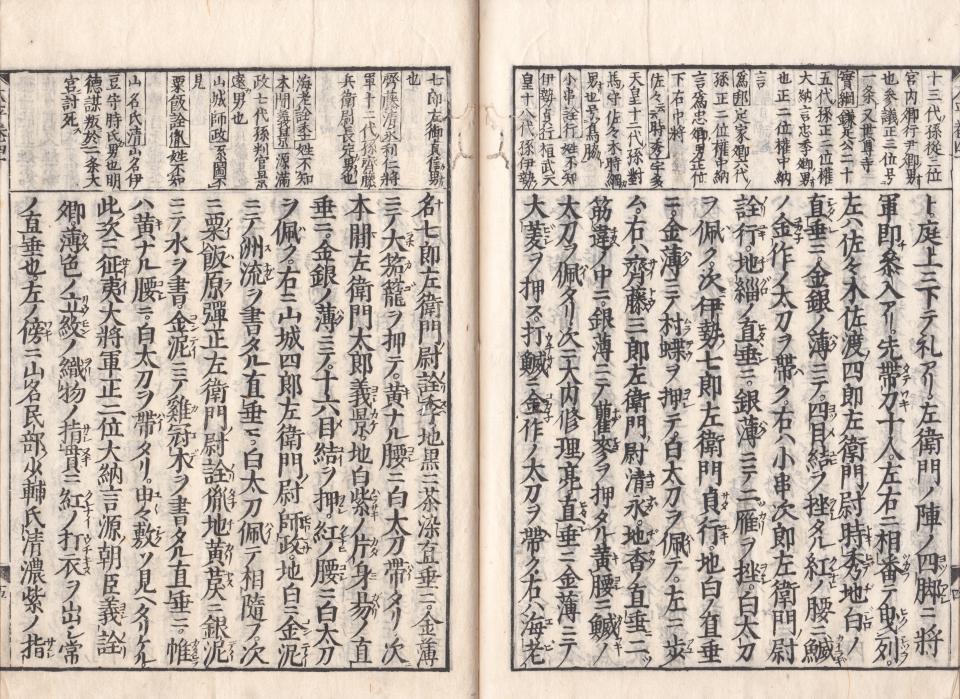 十三代孫從三位
宮内卿行尹卿男
也參議正三位号
一条又世尊寺
寶綱鎌足公二十
五代孫正二位權
大納言忠季卿男
也正二位權中納
言
爲邦定家卿六代
孫正二位權中納
言爲忠卿男正位
下右中將
佐々木時秀宇多
天皇十二代孫對
馬守佐々木時綱
男也号高脇
小串詮行姓不知
伊勢貞行桓武天
皇十八代孫伊勢
ト。庭上ニ下テ礼アリ。左衛門ノ陣ノ四脚ニ將
軍即參入アリ。先帶刀十人。左右ニ相番テ取列。
左ハ佐々木佐渡四郎左衛門尉時秀。地白ノ
直垂ニ。金銀ノ薄ニテ。四目結ヲ押タル紅ノ腰ニ鰄
ノ金作ノ太刀ヲ帶ク。右ハ小串次郎左衛門尉
詮行。地緇ノ直垂ニ。銀薄ニテ二雁ヲ押。白太刀
ヲ佩ク。次伊勢七郎左衛門貞行。地白ノ直垂
ニ。金薄ニテ村蝶ヲ押テ白太刀ヲ佩テ。左ニ歩
ム。右ハ齊藤三郎左衛門尉清永。地香ノ直垂ニ。二
筋違ノ中ニ。銀薄ニテ瞿麥ヲ押タル黄腰ニ鰄ノ
太刀ヲ佩タリ。次ニ大内修理亮。直垂ニ金薄ニテ
大菱ヲ押ス。打鰄ニ金作ノ太刀ヲ帶ク。右ハ海老
七郎左衛門貞信男
也
齊藤清永利仁將
軍十二代孫齊藤
兵衛尉長定男也
海老詮季姓不知
本間義景源滿
政七代孫判官景
遠男也
山城師政系圖不
見
粟飯詮胤姓不知
山名氏清山名伊
豆守時氏男也明
德謀叛於二条大
宮討死ス
名七郎左衛門尉詮季。地黒ニ茶染直垂ニ。金薄
ニテ大笳籠ヲ押テ。黄ナル腰ニ白太刀帶タリ。次
本間左衛門太郎義景。地白紫ノ片身易ノ直
垂ニ。金銀ノ薄ニテ。十六目結ヲ押。紅ノ腰ニ白太刀
ヲ佩ク。右ニ山城四郎左衛門尉師政。地白ニ金泥
ニテ洲流ヲ書タル直垂ニ。白太刀佩テ相隨フ。次
ニ粟飯原彈正左衛門尉詮胤地黄莀ニ銀泥
ニテ水ヲ書。金泥ニテ雞冠木ヲ書タル直垂ニ。帷
ハ黄ナル腰ニ。白太刀ヲ帶タリ。由々敷ツ見ヘタリケル。
此次ニ征夷大將軍正二位大納言源朝臣義詮
卿。薄色ノ立紋ノ織物ノ指貫ニ紅ノ打衣ヲ出シ常
ノ直垂也。左ノ傍ニ山名民部少輔氏清。濃紫ノ指